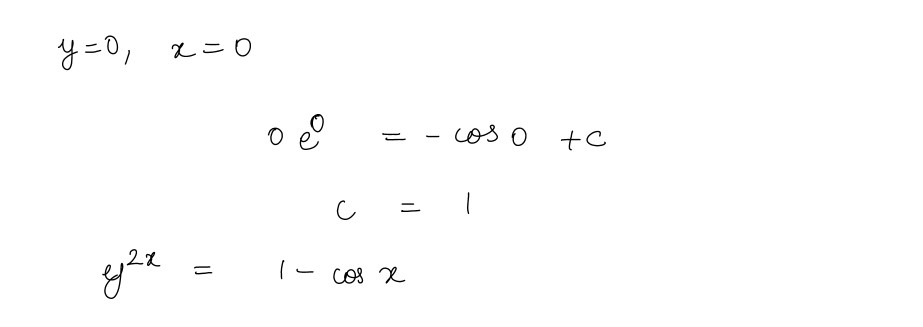 y=0, x=0
0 e^0 = - cos 0 + c
c = 1
ey^{2x} = 1 - cos x